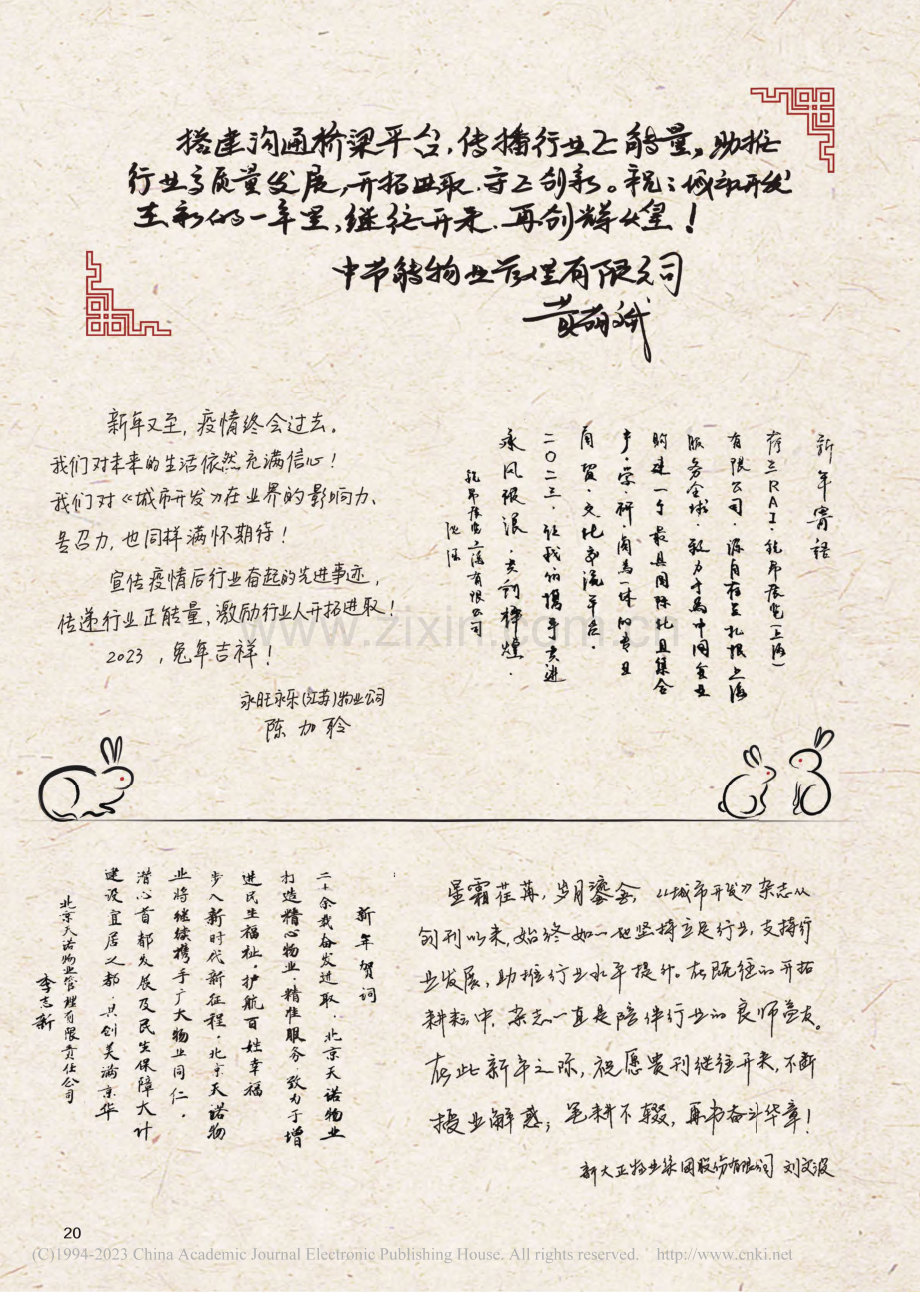 搭建沟通桥梁平台,传播行业正能量,助推
行业高质量发展,开拓进取.守正创新。祝:城市开发
在新的一年里,继往开来.再创辉煌!
中节能物业管理有限公司
新年又至,疫情终会过去。
我们对未来的生活依然充满信心!
我们对《城市开发》在业界的影响力、
号召力,也同样满怀期待!
宣传疫情后行业奋起的先进事迹,
传递行业正能量,激励行业人开拓进取!
2023,兔年吉祥!
永旺永乐(江苏)物业公司
陈加聆
新年寄语
荷兰RAI·
展览(上海)
有限公司·源自荷兰扎根上海
服务全球·致力于为中国
业
构建一个最具国际化且集合
产·学·研·商为一体的专业
商贸·文化交流平台·
二〇二三·让我们携手共进
乘风破浪·共创辉煌·
展览上海有限公司
新年贺词
二十余载奋发进取·北京天诺物业
打造精心物业·精准服务·致力于增
进民生福祉·护航百姓幸福
步入新时代新征程·北京天诺物
业将继续携手广大物业同仁·
潜心首都发展及民生保障大计
建设宜居之都·共创美满京华
北京天诺物业管理有限责任公司
李志新
星霜荏苒,岁月鎏金,《城市开发》杂志从
创刊以来,始终如一地坚持立足行业,支持行
业发展,助推行业水平提升。在既往的开拓
耕耘中,杂志一直是陪伴行业的良师益友。
在此新年之际,祝愿贵刊继往开来,不断
授业解惑;笔耕不辍,再书奋斗华章!
新大正物业集团股份有限公司 刘文波
www.zixin.com.cn
20
(C)1994-2023 China Academic Journal Electronic Publishing House. All rights reserved. http://www.cnki.net